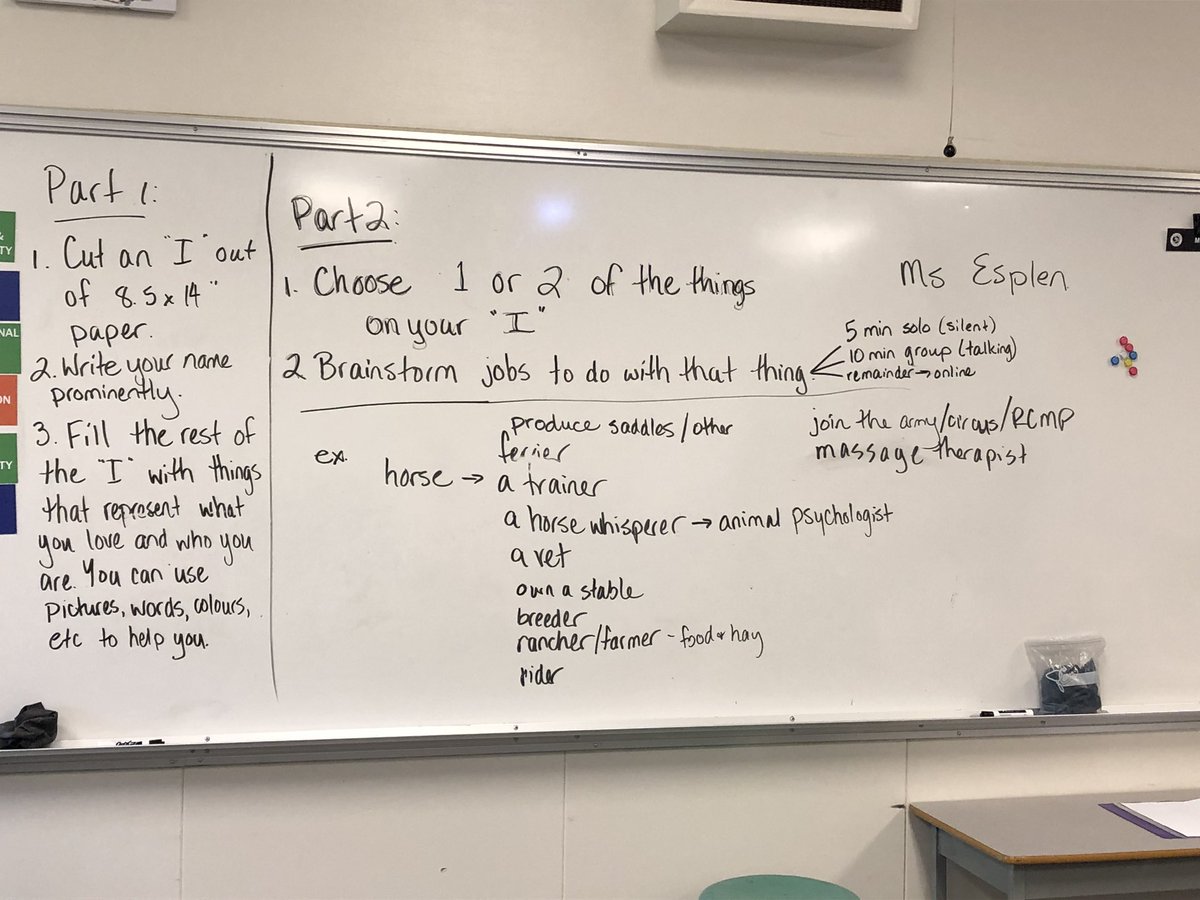 Part 1:
1. Cut an "I" out
of 8.5 x 14"
paper.
2. Write your name
prominently.
3. Fill the rest of
the "I" with things
that represent what
you love and who you
are. You can use
pictures, words, colours,
etc to help you.
Part 2:
1. Choose 1 or 2 of the things
on your "I"
2 Brainstorm jobs to do with that thing.
5 min solo (silent)
10 min group (talking)
remainder → online
Ms Esplen
ex.
horse →
produce saddles/other
ferrier
a trainer
a horse whisperer → animal psychologist
a vet
own a stable
breeder
rancher/farmer - food & hay
rider
join the army/circus/RCMP
massage therapist
&
TY
NAL
ON
TY